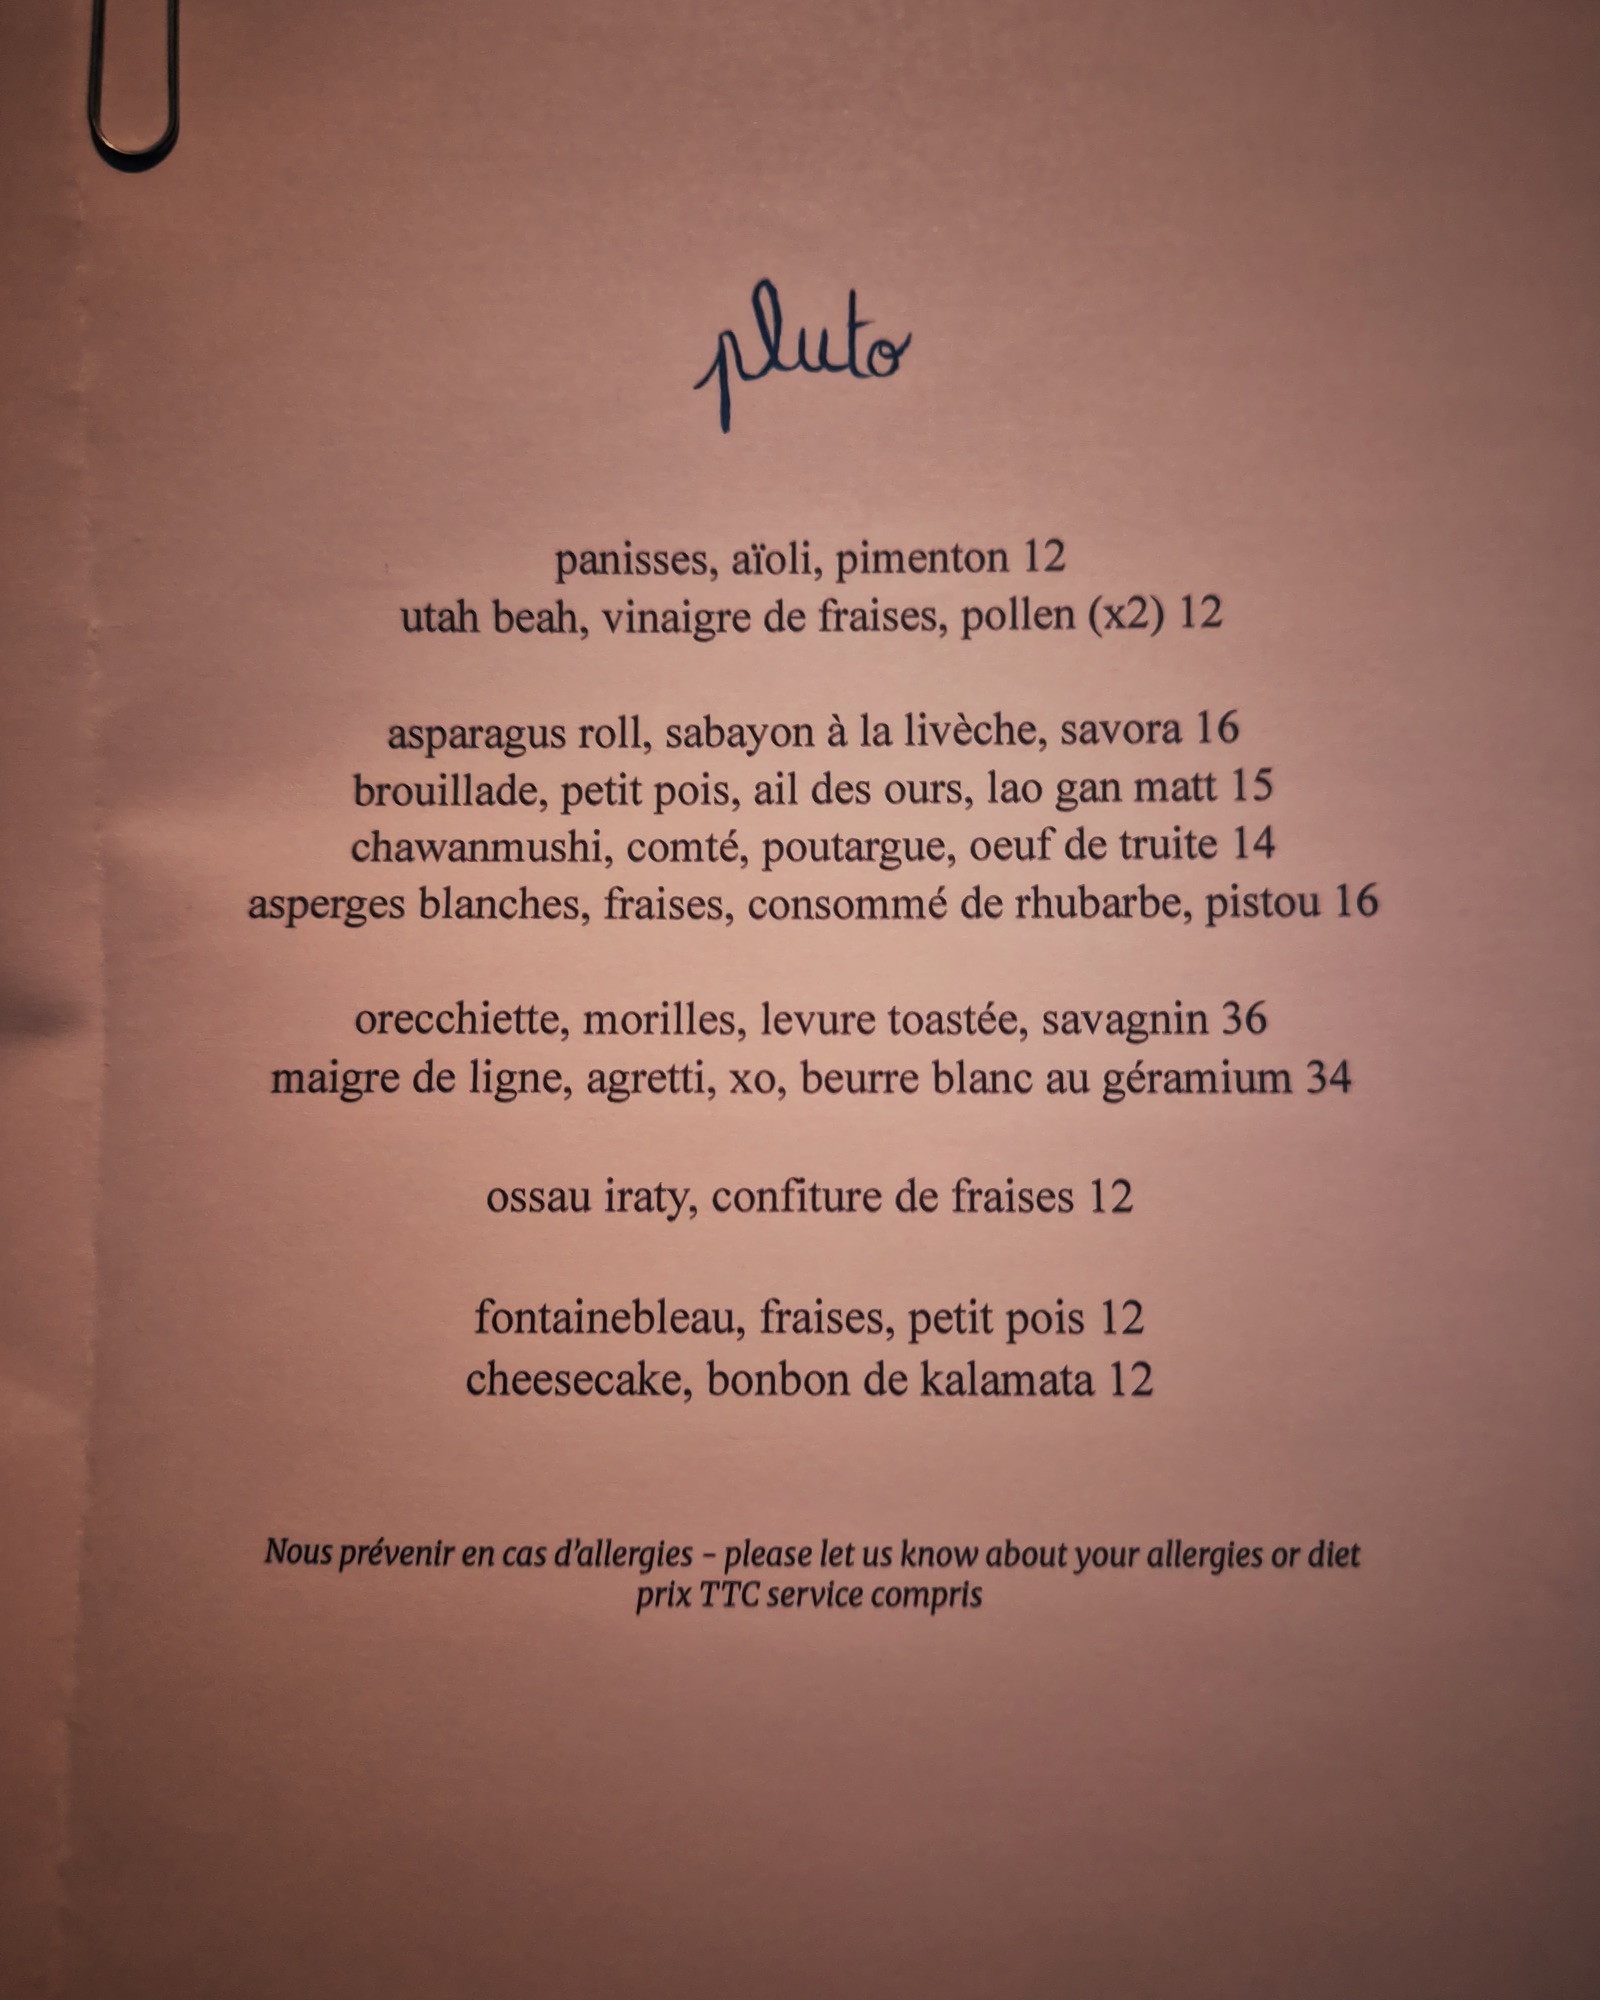 pluto
panisses, aïoli, pimenton 12
utah beah, vinaigre de fraises, pollen (x2) 12
asparagus roll, sabayon à la livèche, savora 16
brouillade, petit pois, ail des ours, lao gan matt 15
chawanmushi, comté, poutargue, oeuf de truite 14
asperges blanches, fraises, consommé de rhubarbe, pistou 16
orecchiette, morilles, levure toastée, savagnin 36
maigre de ligne, agretti, xo, beurre blanc au géramium 34
ossau iraty, confiture de fraises 12
fontainebleau, fraises, petit pois 12
cheesecake, bonbon de kalamata 12
Nous prévenir en cas d'allergies - please let us know about your allergies or diet
prix TTC service compris